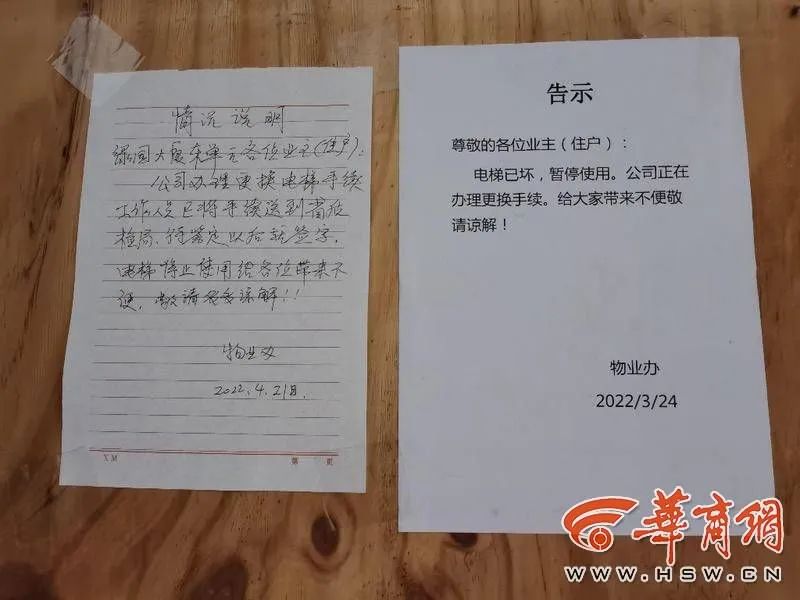 情况说明
绿园大厦东单元各位业主(住户):
公司办理更换电梯手续
工作人员已将手续送到省质
检局、待鉴定以后就签字,
电梯停止使用给各位带来不
便,敬请多多谅解!!
物业办
2022.4.21日.
XM
第 页
告示
尊敬的各位业主(住户):
电梯已坏,暂停使用。公司正在
办理更换手续。给大家带来不便敬
请谅解!
物业办
2022/3/24
華商網
WWW.HSW.CN